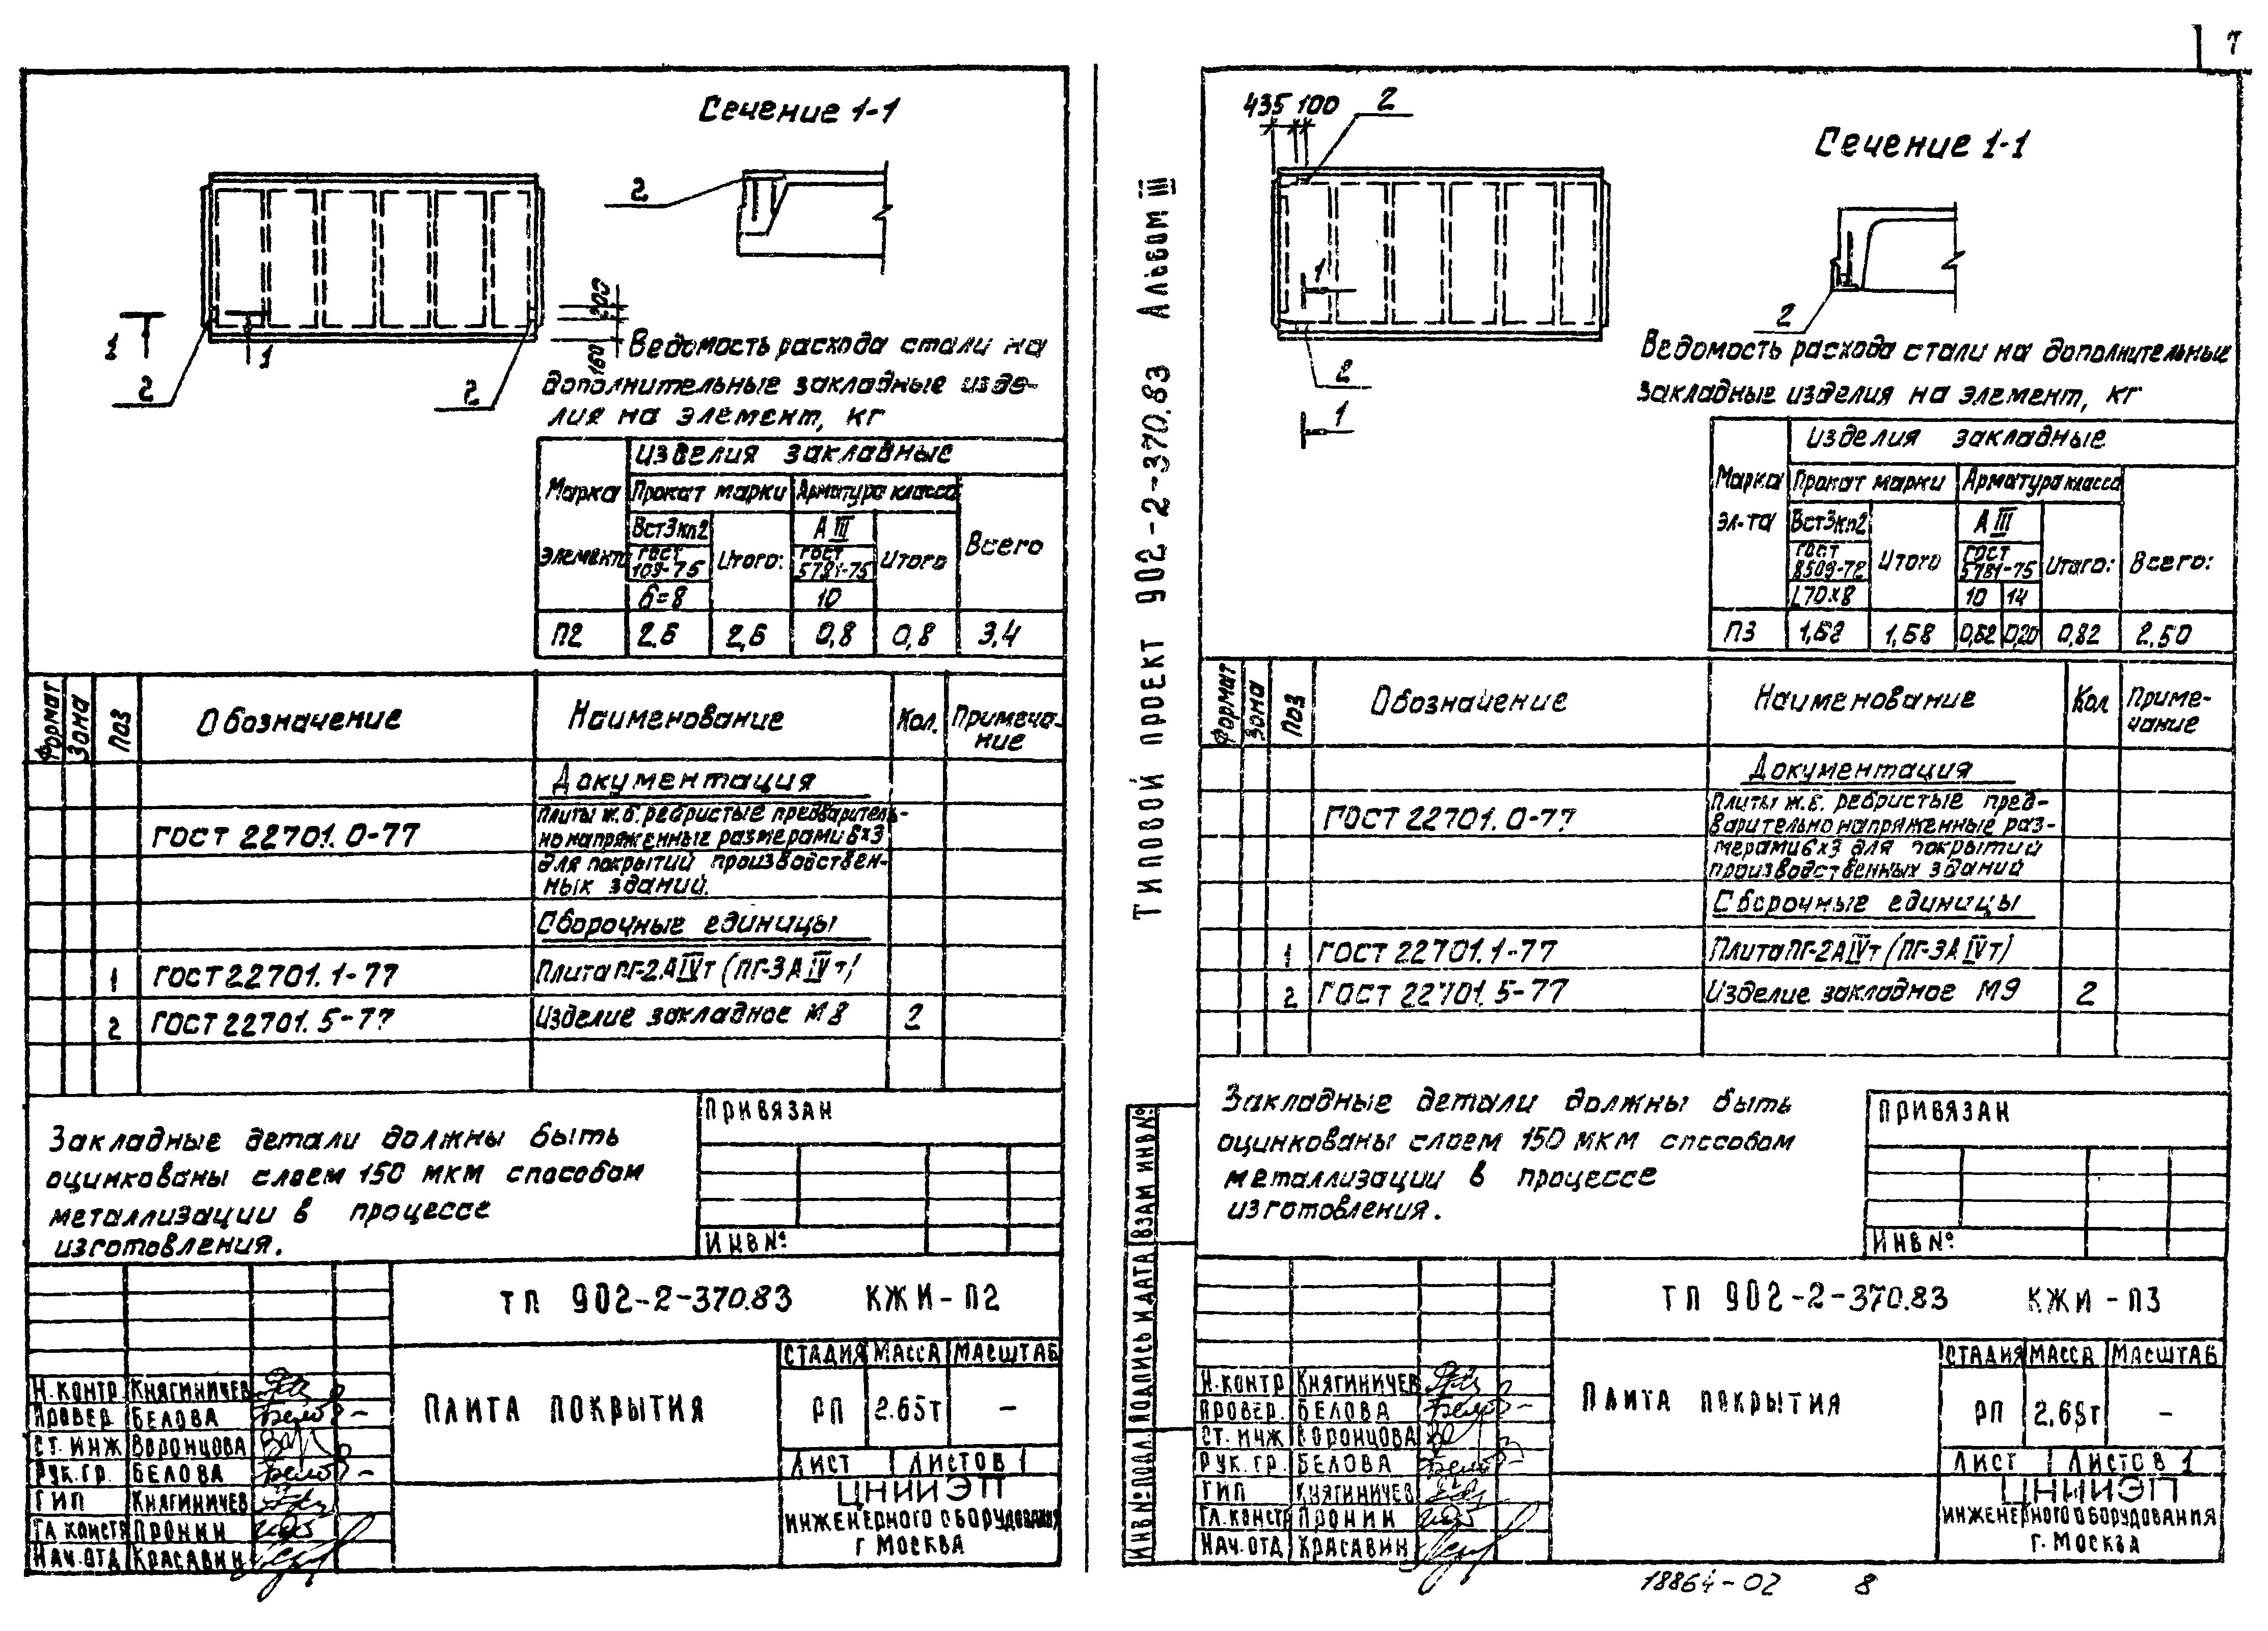 7
Сечение 1-1
2
200
160
1
1
2
2
Ведомость расхода стали на
дополнительные закладные изде-
лия на элемент, кг
Марка элемента
Изделия закладные
Прокат марки
Арматура класса
Всего
Вст3кп2
Итого:
А III
Итого
ГОСТ 103-75
ГОСТ 5781-75
δ=8
10
П2 2,6 2,6 0,8 0,8 3,4
Формат Зона Поз Обозначение Наименование Кол. Примеча-
ние
Документация
ГОСТ 22701.0-77
Плиты ж.б. ребристые предваритель-
но напряженные размерами 6х3
для покрытий производствен-
ных зданий.
Сборочные единицы
1 ГОСТ 22701.1-77 Плита ПГ-2АIVт (ПГ-3АIVт)
2 ГОСТ 22701.5-77 Изделие закладное М8 2
Закладные детали должны быть
оцинкованы слоем 150 мкм способом
металлизации в процессе
изготовления.
ПРИВЯЗАН
ИНВ №:
ТП 902-2-370.83 КЖИ-П2
Н.КОНТР КНЯГИНИЧЕВ
ПРОВЕР БЕЛОВА
СТ. ИНЖ ВОРОНЦОВА
РУК.ГР. БЕЛОВА
ГИП КНЯГИНИЧЕВ
ГЛ.КОНСТР ПРОНИН
НАЧ.ОТД КРАСАВИН
ПЛИТА ПОКРЫТИЯ
СТАДИЯ МАССА МАСШТАБ
РП 2.65т –
ЛИСТ ЛИСТОВ 1
ЦНИИЭП
ИНЖЕНЕРНОГО ОБОРУДОВАНИЯ
Г МОСКВА
ТИПОВОЙ ПРОЕКТ 902-2-370.83 АЛЬБОМ III
ИНВ№ПОДЛ. ПОДПИСЬ И ДАТА ВЗАМ ИНВ№:
435 100 2
Сечение 1-1
1
2
1
2
Ведомость расхода стали на дополнительные
закладные изделия на элемент, кг
Марка эл-та
Изделия закладные
Прокат марки
Арматура класса
Всего:
Вст3кп2
Итого
А III
Итого:
ГОСТ 8509-72
ГОСТ 5781-75
L70х8
10 14
П3 1,68 1,68 0,62 0,20 0,82 2,50
Формат Зона Поз Обозначение Наименование Кол Приме-
чание
Документация
ГОСТ 22701.0-77
Плиты ж.б. ребристые пред-
варительно напряженные раз-
мерами 6х3 для покрытий
производственных зданий
Сборочные единицы
1 ГОСТ 22701.1-77 Плита ПГ-2АIVт (ПГ-3АIVт)
2 ГОСТ 22701.5-77 Изделие закладное М9 2
Закладные детали должны быть
оцинкованы слоем 150 мкм способом
металлизации в процессе
изготовления.
ПРИВЯЗАН
ИНВ №:
ТП 902-2-370.83 КЖИ-П3
Н.КОНТР КНЯГИНИЧЕВ
ПРОВЕР. БЕЛОВА
СТ. ИНЖ ВОРОНЦОВА
РУК. ГР. БЕЛОВА
ГИП КНЯГИНИЧЕВ
ГЛ.КОНСТР ПРОНИН
НАЧ.ОТД КРАСАВИН
ПЛИТА ПОКРЫТИЯ
СТАДИЯ МАССА МАСШТАБ
РП 2.65т –
ЛИСТ ЛИСТОВ 1
ЦНИИЭП
ИНЖЕНЕРНОГО ОБОРУДОВАНИЯ
Г. МОСКВА
18864-02 8